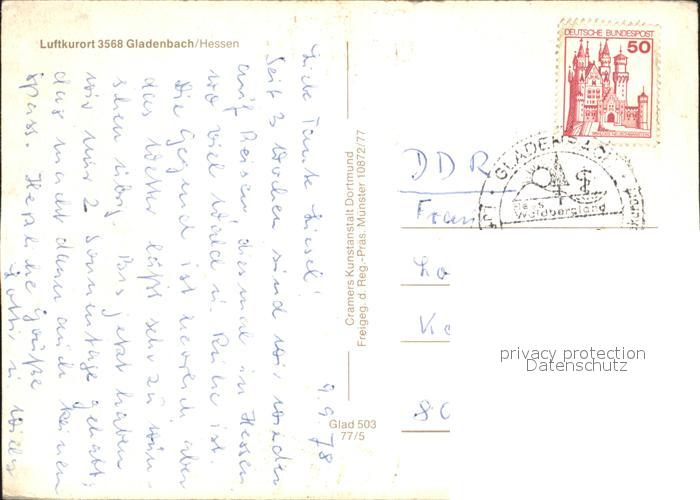 Luftkurort 3568 Gladenbach/Hessen
9.9.78
Liebe Tante Liesel!
Seit 3 Wochen sind wir wieder
auf Reisen, diesmal in Hessen
wo viel Wald u. Ruhe ist.
Die Gegend ist herrlich, aber
das Wetter läßt sehr zu wün-
schen übrig. Bis jetzt haben
wir nur 2 Sonnentage gehabt,
das macht dann auch keinen
Spass. Herzliche Grüße
Cramers Kunstanstalt Dortmund
Freigeg. d. Reg.-Präs. Münster 10872/77
Glad 503
77/5
DEUTSCHE BUNDESPOST
50
GLADENBACH
Waldbergland
DDR
Frau
privacy protection
Datenschutz